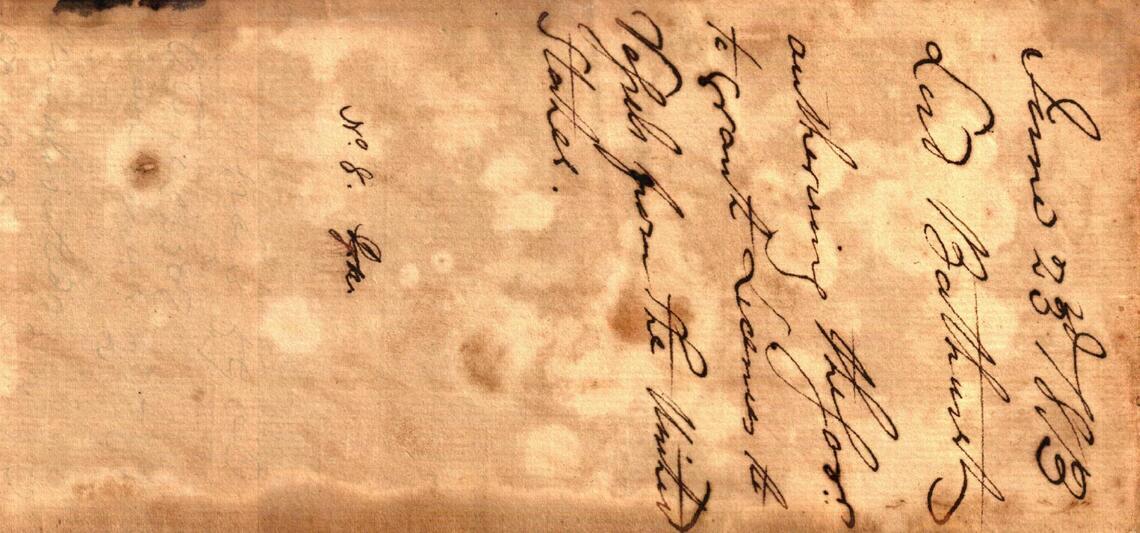 June 23rd 1813
Lord Bathurst
authorising the Govr.
to grant Licenses to
Vessels from the United
States.
No. 8.